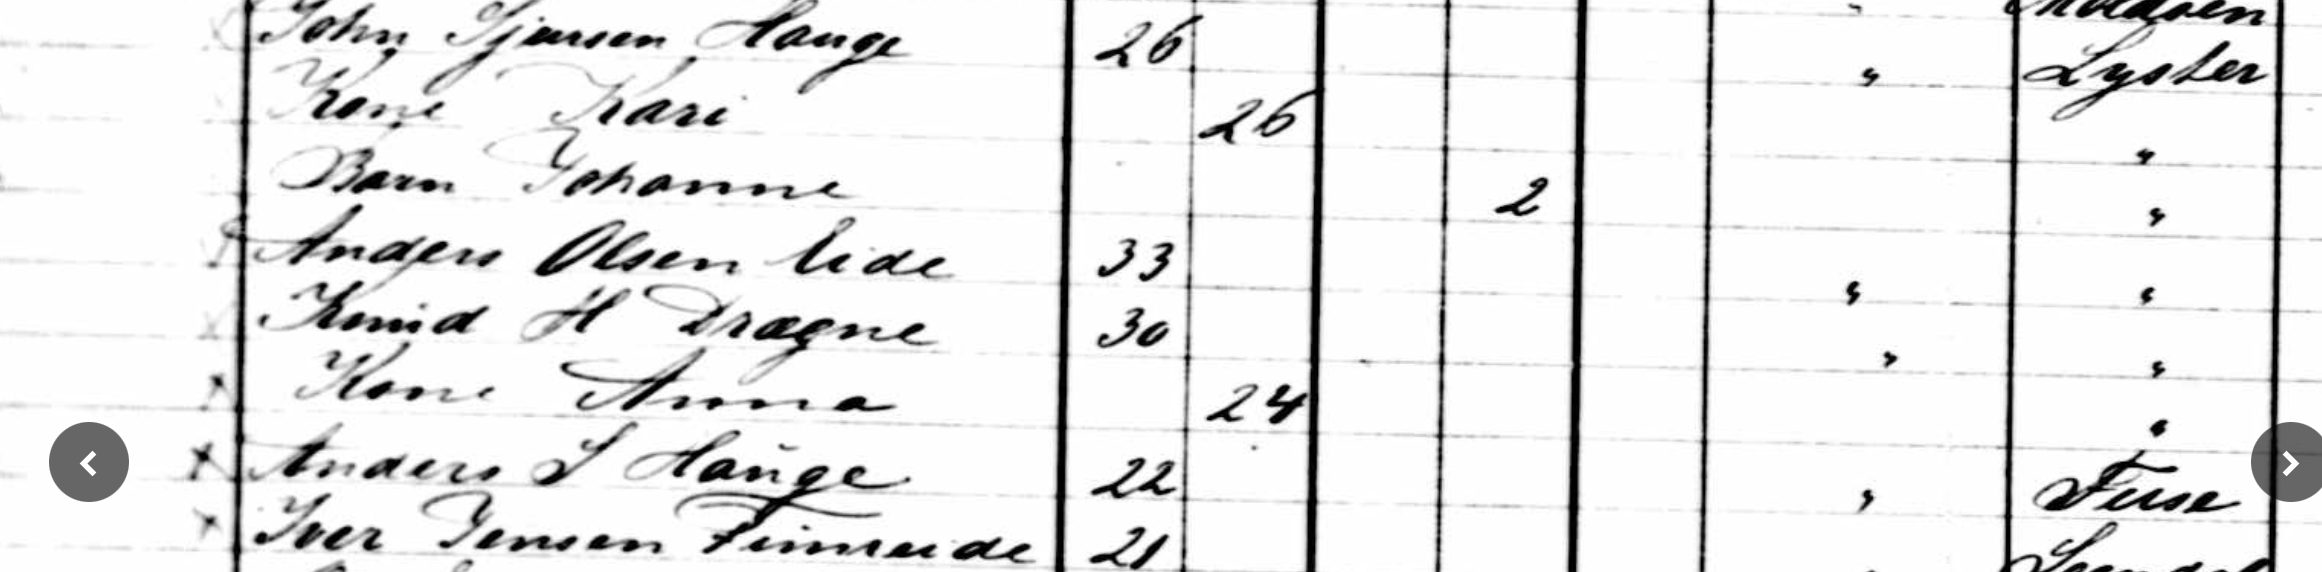 John Sjursen Hauge 26 " Lyster
Kone Kari 26 "
Barn Johanne 2 "
Anders Olsen Eide 33 " "
Knud H Drægne 30 " "
Kone Anna 24 "
Anders S Hauge 22 " Fuse
Iver Jensen Fimreide 21